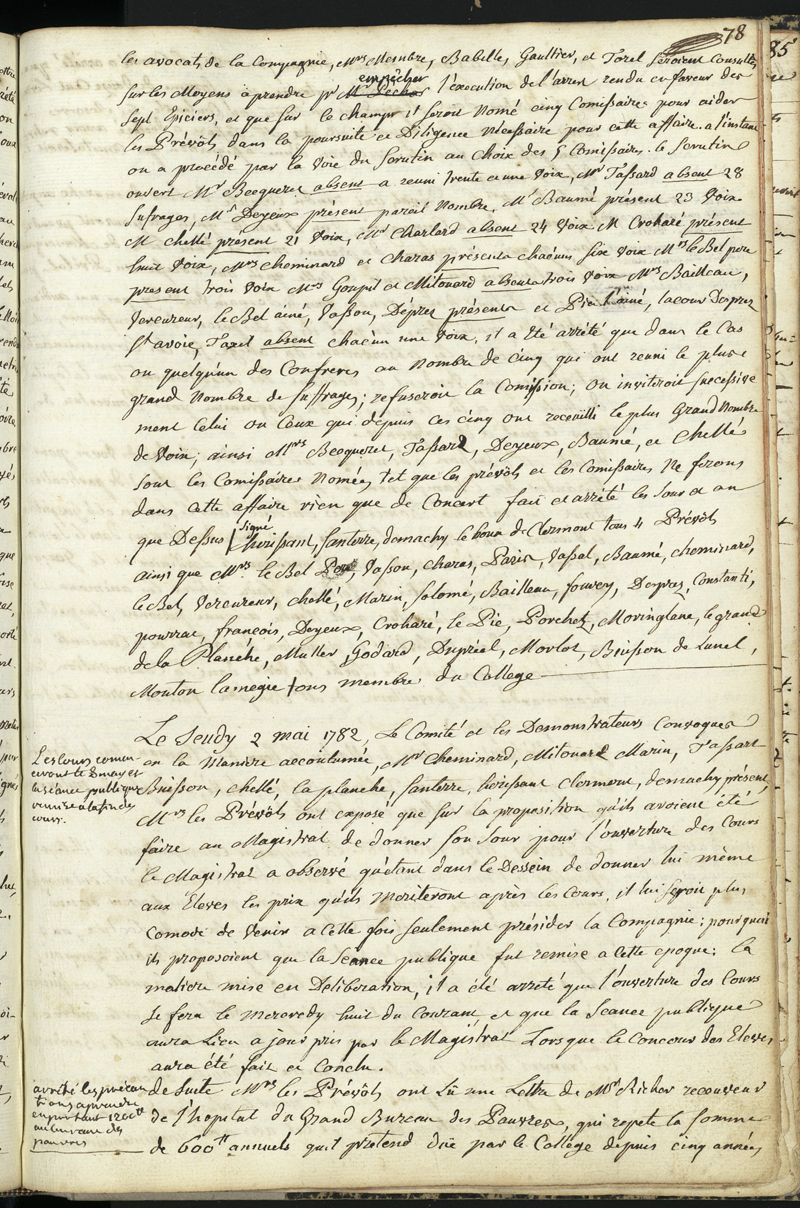 78
les avocats de la Compagnie, Mrs Membre, Babelle, Gaultier, et Torel seroient Consultés
sur les Moyens a prendre pr empêcher l'execution de l'arrest rendu en faveur des
Sept Epiciers, et que sur le champ il seroit Nomé cinq Comissaires pour aider
les Prévôts dans la poursuite et Diligence Nécessaire pour cette affaire. a l'instant
on a procédé par la Voie du Scrutin au choix des 5 Comissaires. le Scrutin
ouvert Mr Becqueret absent a reuni trente et une Voix, Mr Tassard absent 28
Suffrages, Mr Deyeux présent pareil Nombre, Mr Baumé présent 23 Voix
M chellé present 21 Voix, Mr Charlard absent 24 Voix M Croharé présent
huit Voix, Mrs Cheminard et Charas présents chacun six Voix Mrs le Bel pere
present trois Voix Mrs Goupil et Mitouard absents trois Voix Mrs Bailleau,
Vereureur, le Bel ainé, Vasson, Dépres présents et Pia l'ainé, lacour Despres
St avoie, Taxil absent chacun une Voix, il a été arrété que dans le Cas
ou quelqu'un des Confreres au Nombre de cinq qui ont reuni le plus
grand Nombre de suffrages; refuseroit la Comission; on inviteroit successive
ment Celui ou Ceux qui depuis ces cinq ont recueilli le plus Grand Nombre
de Voix; ainsi Mrs Becqueret, Tassard, Deyeux, Baumé, et Chellé
sont les Comissaires Nomées, et que les prévôts et les Comissaires Ne feront
dans cette affaire rien que de Concert fait et arrété les Jour et an
que Dessus signé hoissant, Santerre, demachy le houx de Clermont tous 4 Prévôts
ainsi que Mrs le Bel Vasson, charas, Paris, Vassal, Baumé, cheminard,
le Bel, Vereureur, chellé, Marin, Solomé, Bailleau, fourcy, Despres, Constanti,
pourrat, françois, Deyeux, Croharé, le Pie, Porchet, Moringlane, le grand
de la Planche, Muller, Godard, Dupréel, Morlot, Buisson de Lunel,
Mouton lamegie tous membres du College
Le Jeudy 2 mai 1782, Le Comité et les Demonstrateurs Convoqués
Les Cours comen
ceront le 8 may et
la séance publique
remise a la fin des
cours.
en la Maniere accoutumée, Mrs Cheminard, Mitouard Marin, Tassart
Buisson, chellé, la planche, Santerre, hoissant Clermont, demachy présents
Mrs les Prévôts ont exposé que sur la proposition qu'ils avoient été
faire au Magistrat de donner son Jour pour l'ouverture des Cours
le Magistrat a observé qu'étant dans le Dessein de donner lui même
aux Eleves les prix qu'ils Meriteront après les Cours, il lui seroit plus
Comode de Venir a cette fois seulement présider la Compagnie; pourquoi
ils proposoient que la Seance publique fut remise a cette epoque: la
matiere mise en Deliberation, il a été arreté que l'ouverture des Cours
se fera le Mercredy huit du Courant et que la Seance publique
aura Lieu a jour pris par le Magistrat Lorsque le Concours des Eleves
aura été fait et Conclu.
arrété les précau
tions a prendre
en portant 1200tt
au bureau des
pauvres
de suite Mrs les Prévôts ont Lû une Lettre de Mr Richer receveur
de l'hopital du Grand Bureau des Pauvres, qui repete la Somme
de 600tt annuels qu'il prétend düe par le Collège depuis cinq années